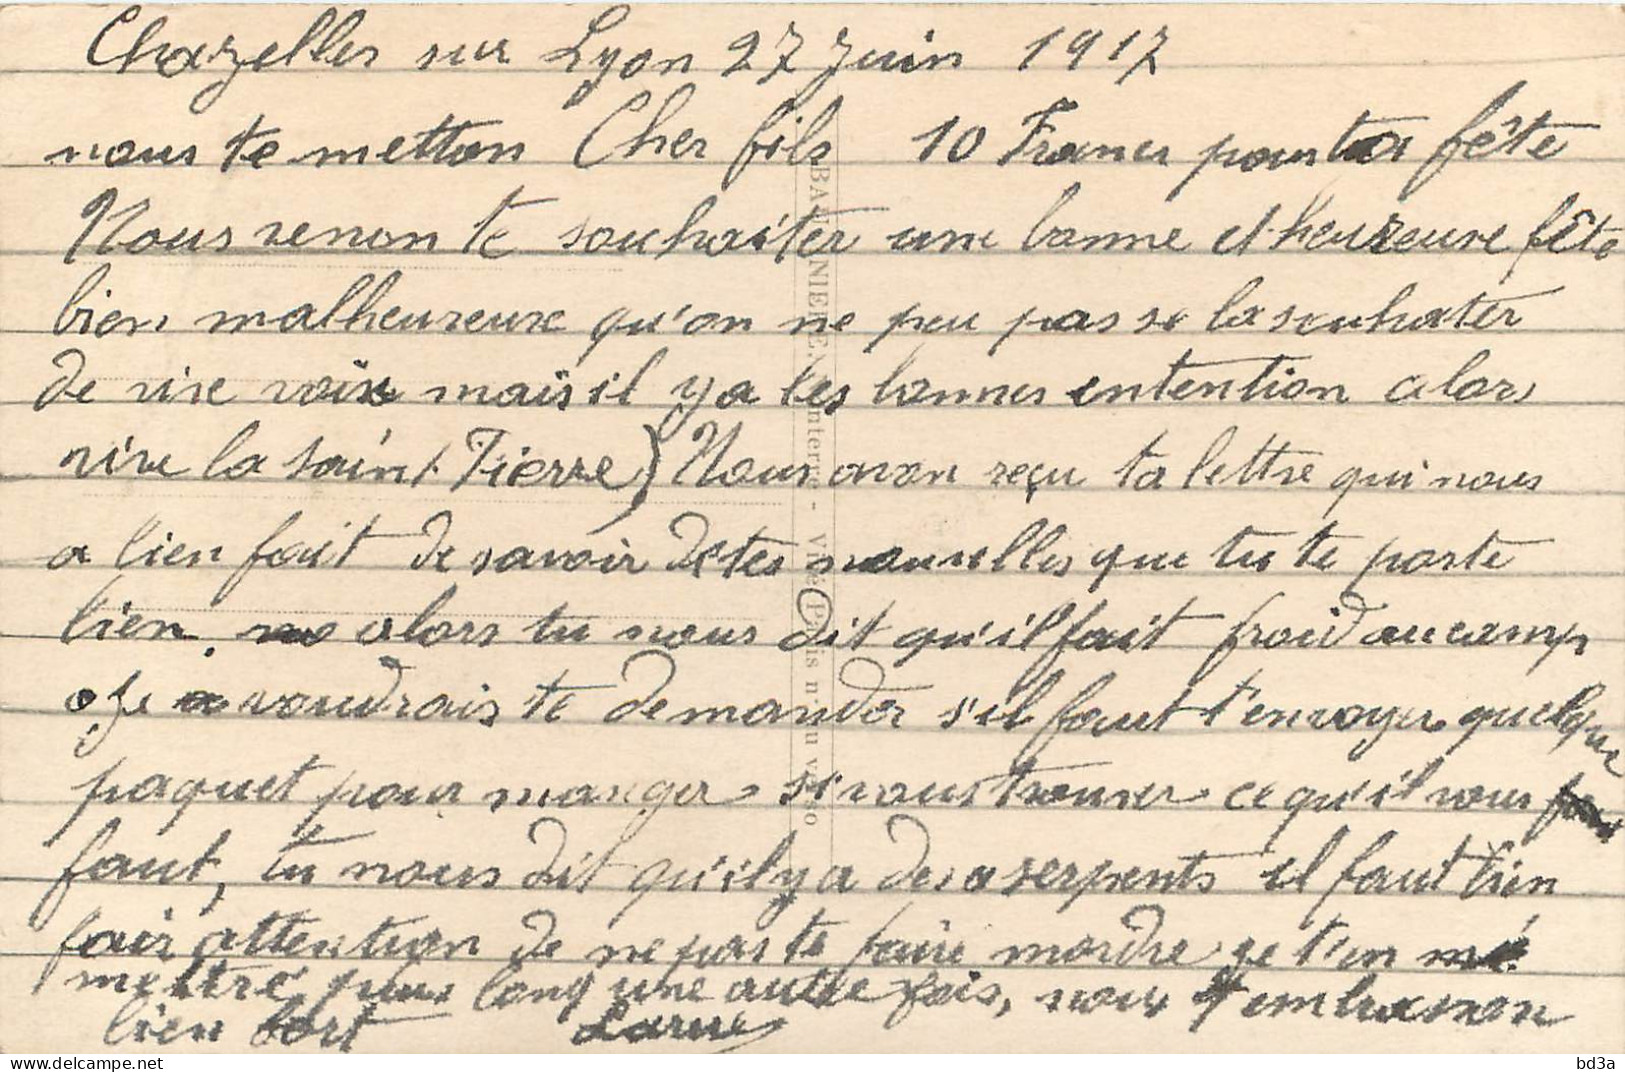 Chazelles sur Lyon 27 Juin 1917
nous te metton Cher fils 10 Francs pour ta fête
Nous venon te souhaiter une bonne et heureuse fête
bien malheureuse qu'on ne peu pas se la souhater
de vive voix mais il y a les bonnes entention alors
vive la saint Pierre) Nous avon reçu ta lettre qui nous
a bien fait de savoir de tes nouvelles que tu te porte
bien. alors tu nous dit qu'il fait froid au camp
je voudrais te demander s'il faut t'envoyer quelque
paquet pour manger si vous trouver ce qu'il vous
faut, tu nous dit qu'il y a des serpents il faut bien
fair attention de ne pas te faire mordre je t'en
mettré plus long une autre fois, nous t'embrasson
bien fort
bd3a